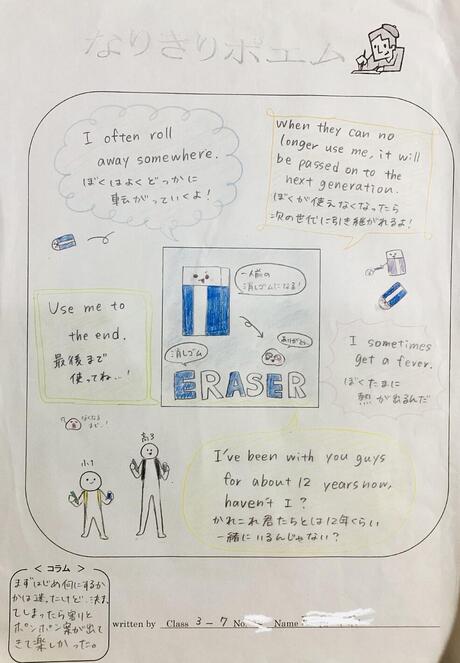 なりきりポエム
I often roll
away somewhere.
ぼくはよくどっかに
転がっていくよ!
When they can no
longer use me, it will
be passed on to the
next generation.
ぼくが使えなくなったら
次の世代に引き継がれるよ!
Use me to
the end.
最後まで
使ってね…!
一人前の
消しゴムになる!
ありがとう
消しゴム
ERASER
I sometimes
get a fever.
ぼくたまに
熱が出るんだ
なくなる
まで!
小1
高3
I've been with you guys
for about 12 years now,
haven't I?
かれこれ君たちとは12年くらい
一緒にいるんじゃない?
<コラム>
まずはじめ何にするか
かは迷ったけど、決め
てしまったら割りと
ポンポン案が出て
きて楽しかった。
written by Class 3-7 No. Name